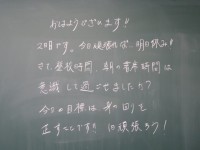 おはようございます!!
2日目です。今日頑張れば、明日休み!!
さて、登校時間、朝の着席時間は
意識して過ごせましたか?
今日の目標は身の回りを
正すことです!! 1日頑張ろう!